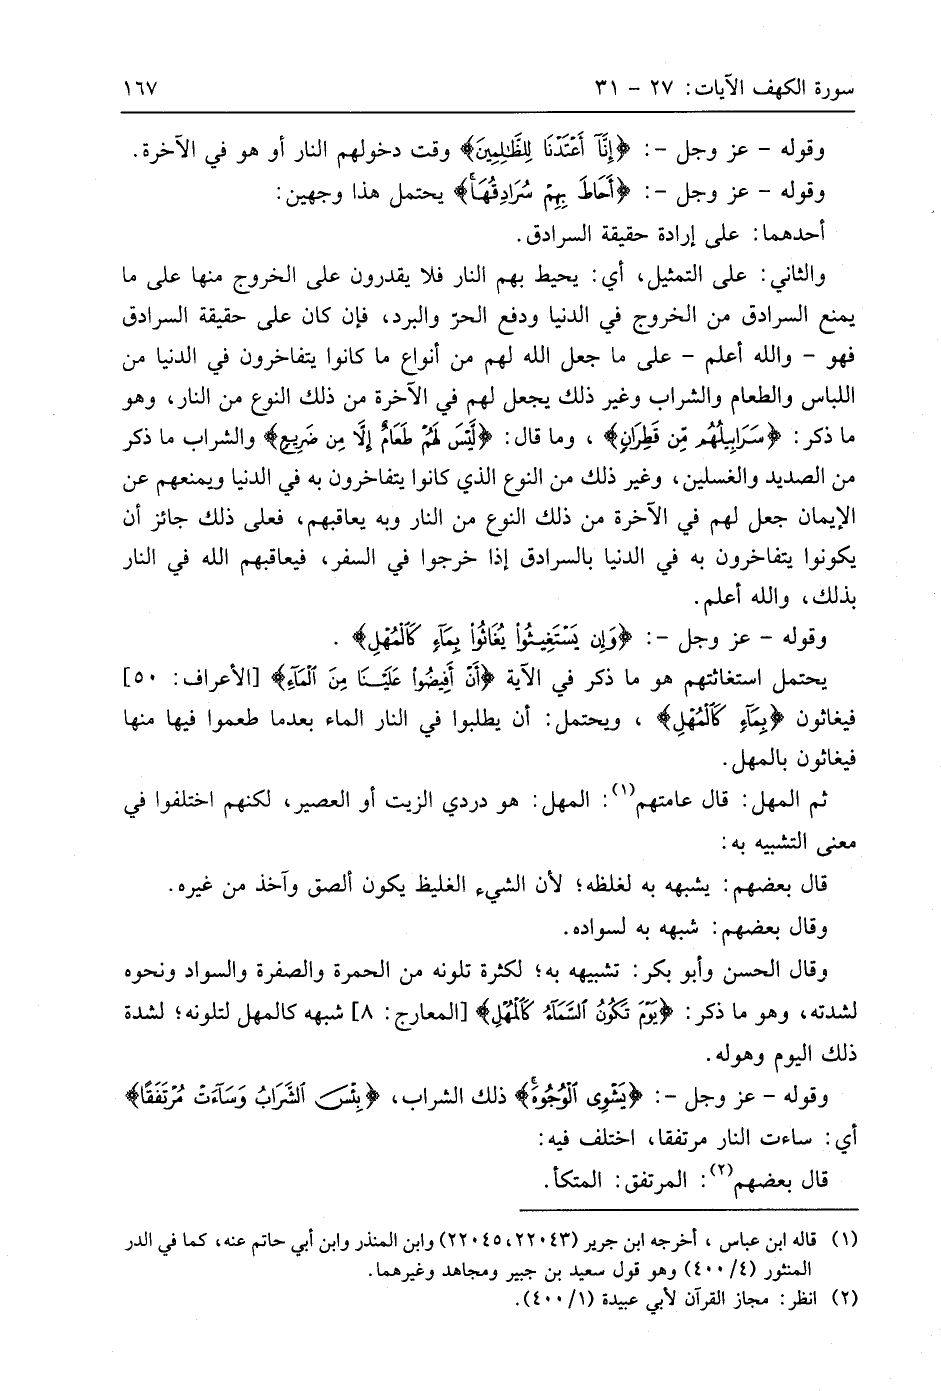 سورة الكهف الآيات: ٢٧ - ٣١ ١٦٧
وقوله - عز وجل -: ﴿إِنَّآ أَعْتَدْنَا لِلظَّٰلِمِينَ﴾ وقت دخولهم النار أو هو في الآخرة.
وقوله - عز وجل -: ﴿أَحَاطَ بِهِمْ سُرَادِقُهَاۚ﴾ يحتمل هذا وجهين:
أحدهما: على إرادة حقيقة السرادق.
والثاني: على التمثيل، أي: يحيط بهم النار فلا يقدرون على الخروج منها على ما
يمنع السرادق من الخروج في الدنيا ودفع الحرّ والبرد، فإن كان على حقيقة السرادق
فهو - والله أعلم - على ما جعل الله لهم من أنواع ما كانوا يتفاخرون في الدنيا من
اللباس والطعام والشراب وغير ذلك يجعل لهم في الآخرة من ذلك النوع من النار، وهو
ما ذكر: ﴿سَرَابِيلُهُم مِّن قَطِرَانٍ﴾ ، وما قال: ﴿لَّيْسَ لَهُمْ طَعَامٌ إِلَّا مِن ضَرِيعٍ﴾ والشراب ما ذكر
من الصديد والغسلين، وغير ذلك من النوع الذي كانوا يتفاخرون به في الدنيا ويمنعهم عن
الإيمان جعل لهم في الآخرة من ذلك النوع من النار وبه يعاقبهم، فعلى ذلك جائز أن
يكونوا يتفاخرون به في الدنيا بالسرادق إذا خرجوا في السفر، فيعاقبهم الله في النار
بذلك، والله أعلم.
وقوله - عز وجل -: ﴿وَإِن يَسْتَغِيثُواْ يُغَاثُواْ بِمَآءٍ كَٱلْمُهْلِ﴾ .
يحتمل استغاثتهم هو ما ذكر في الآية ﴿أَنْ أَفِيضُواْ عَلَيْنَا مِنَ ٱلْمَآءِ﴾ [الأعراف: ٥٠]
فيغاثون ﴿بِمَآءٍ كَٱلْمُهْلِ﴾ ، ويحتمل: أن يطلبوا في النار الماء بعدما طعموا فيها منها
فيغاثون بالمهل.
ثم المهل: قال عامتهم(١): المهل: هو دردي الزيت أو العصير، لكنهم اختلفوا في
معنى التشبيه به:
قال بعضهم: يشبهه به لغلظه؛ لأن الشيء الغليظ يكون ألصق وآخذ من غيره.
وقال بعضهم: شبهه به لسواده.
وقال الحسن وأبو بكر: تشبيهه به؛ لكثرة تلونه من الحمرة والصفرة والسواد ونحوه
لشدته، وهو ما ذكر: ﴿يَوْمَ تَكُونُ ٱلسَّمَآءُ كَٱلْمُهْلِ﴾ [المعارج: ٨] شبهه كالمهل لتلونه؛ لشدة
ذلك اليوم وهوله.
وقوله - عز وجل -: ﴿يَشْوِى ٱلْوُجُوهَۚ﴾ ذلك الشراب، ﴿بِئْسَ ٱلشَّرَابُ وَسَآءَتْ مُرْتَفَقًا﴾
أي: ساءت النار مرتفقا، اختلف فيه:
قال بعضهم(٢): المرتفق: المتكأ.
(١) قاله ابن عباس ، أخرجه ابن جرير (٢٢٠٤٣، ٢٢٠٤٥) وابن المنذر وابن أبي حاتم عنه، كما في الدر
المنثور (٤/ ٤٠٠) وهو قول سعيد بن جبير ومجاهد وغيرهما.
(٢) انظر: مجاز القرآن لأبي عبيدة (١/ ٤٠٠).